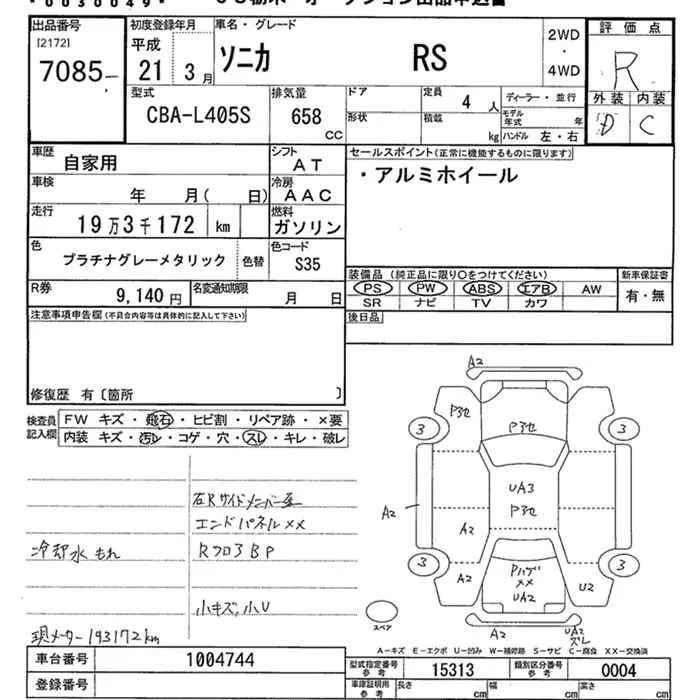 出品番号
[2172]
7085
初度登録年月
平成
21 3月
車名・グレード
ソニカ RS
2WD
・
4WD
評価点
R
外装 内装
D C
型式
CBA-L405S
排気量
658
CC
ドア
形状
定員
4 人
積載
kg
ディーラー・並行
モデル年式 年
ハンドル 左・右
車歴
自家用
シフト
AT
車検
年 月( 日)
冷房
AAC
走行
19万3千172 km
燃料
ガソリン
色
プラチナグレーメタリック
色替
色コード
S35
R券
9,140円
名変通知期限
月 日
セールスポイント(正常に機能するものに限ります)
・アルミホイール
装備品(純正品に限り○をつけてください)
PS PW ABS エアB AW
SR ナビ TV カワ
新車保証書
有・無
後日品
注意事項申告欄(不具合内容等は具体的に記入して下さい)
修復歴 有〔箇所 〕
検査員
記入欄
FW キズ・飛石・ヒビ割・リペア跡・×要
内装 キズ・汚レ・コゲ・穴・スレ・キレ・破レ
右Rサイドメンバー
エンドパネル××
冷却水もれ
RフロアBP
小キズ、小U
現メーター193172km
A2
P3セ
P3セ
3
3
UA3
P3セ
A2
A2
3
3
A2
Pハゲ
××
UA2
U2
A2
UA2
スペア
A-キズ E-エクボ U-凹み W-補修跡 S-サビ C-腐食 XX-交換済
車台番号
1004744
登録番号
型式指定番号
参考
15313
類別区分番号
参考
0004
車庫証明用
参考
長さ cm
幅 cm
高さ cm